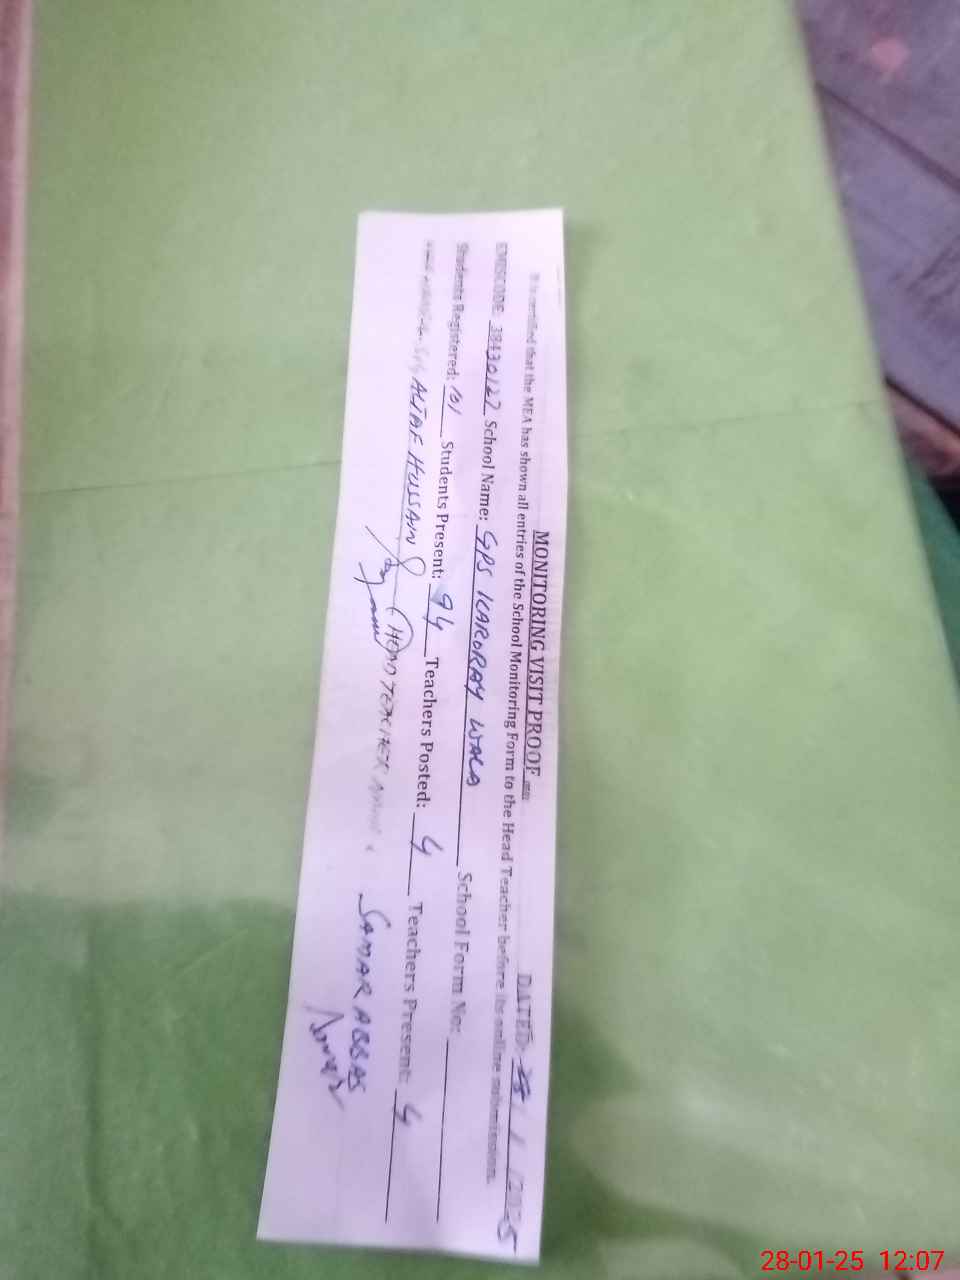 MONITORING VISIT PROOF
DATED: 28 / 1 / 2025
It is certified that the MEA has shown all entries of the School Monitoring Form to the Head Teacher before its online submission.
EMISCODE: 38430127 School Name: GPS KARORAY WALA School Form No:
Students Registered: 101 Students Present: 94 Teachers Posted: 4 Teachers Present: 4
ALTAF HUSSAIN (HEAD TEACHER SAMAR ABBAS
28-01-25 12:07